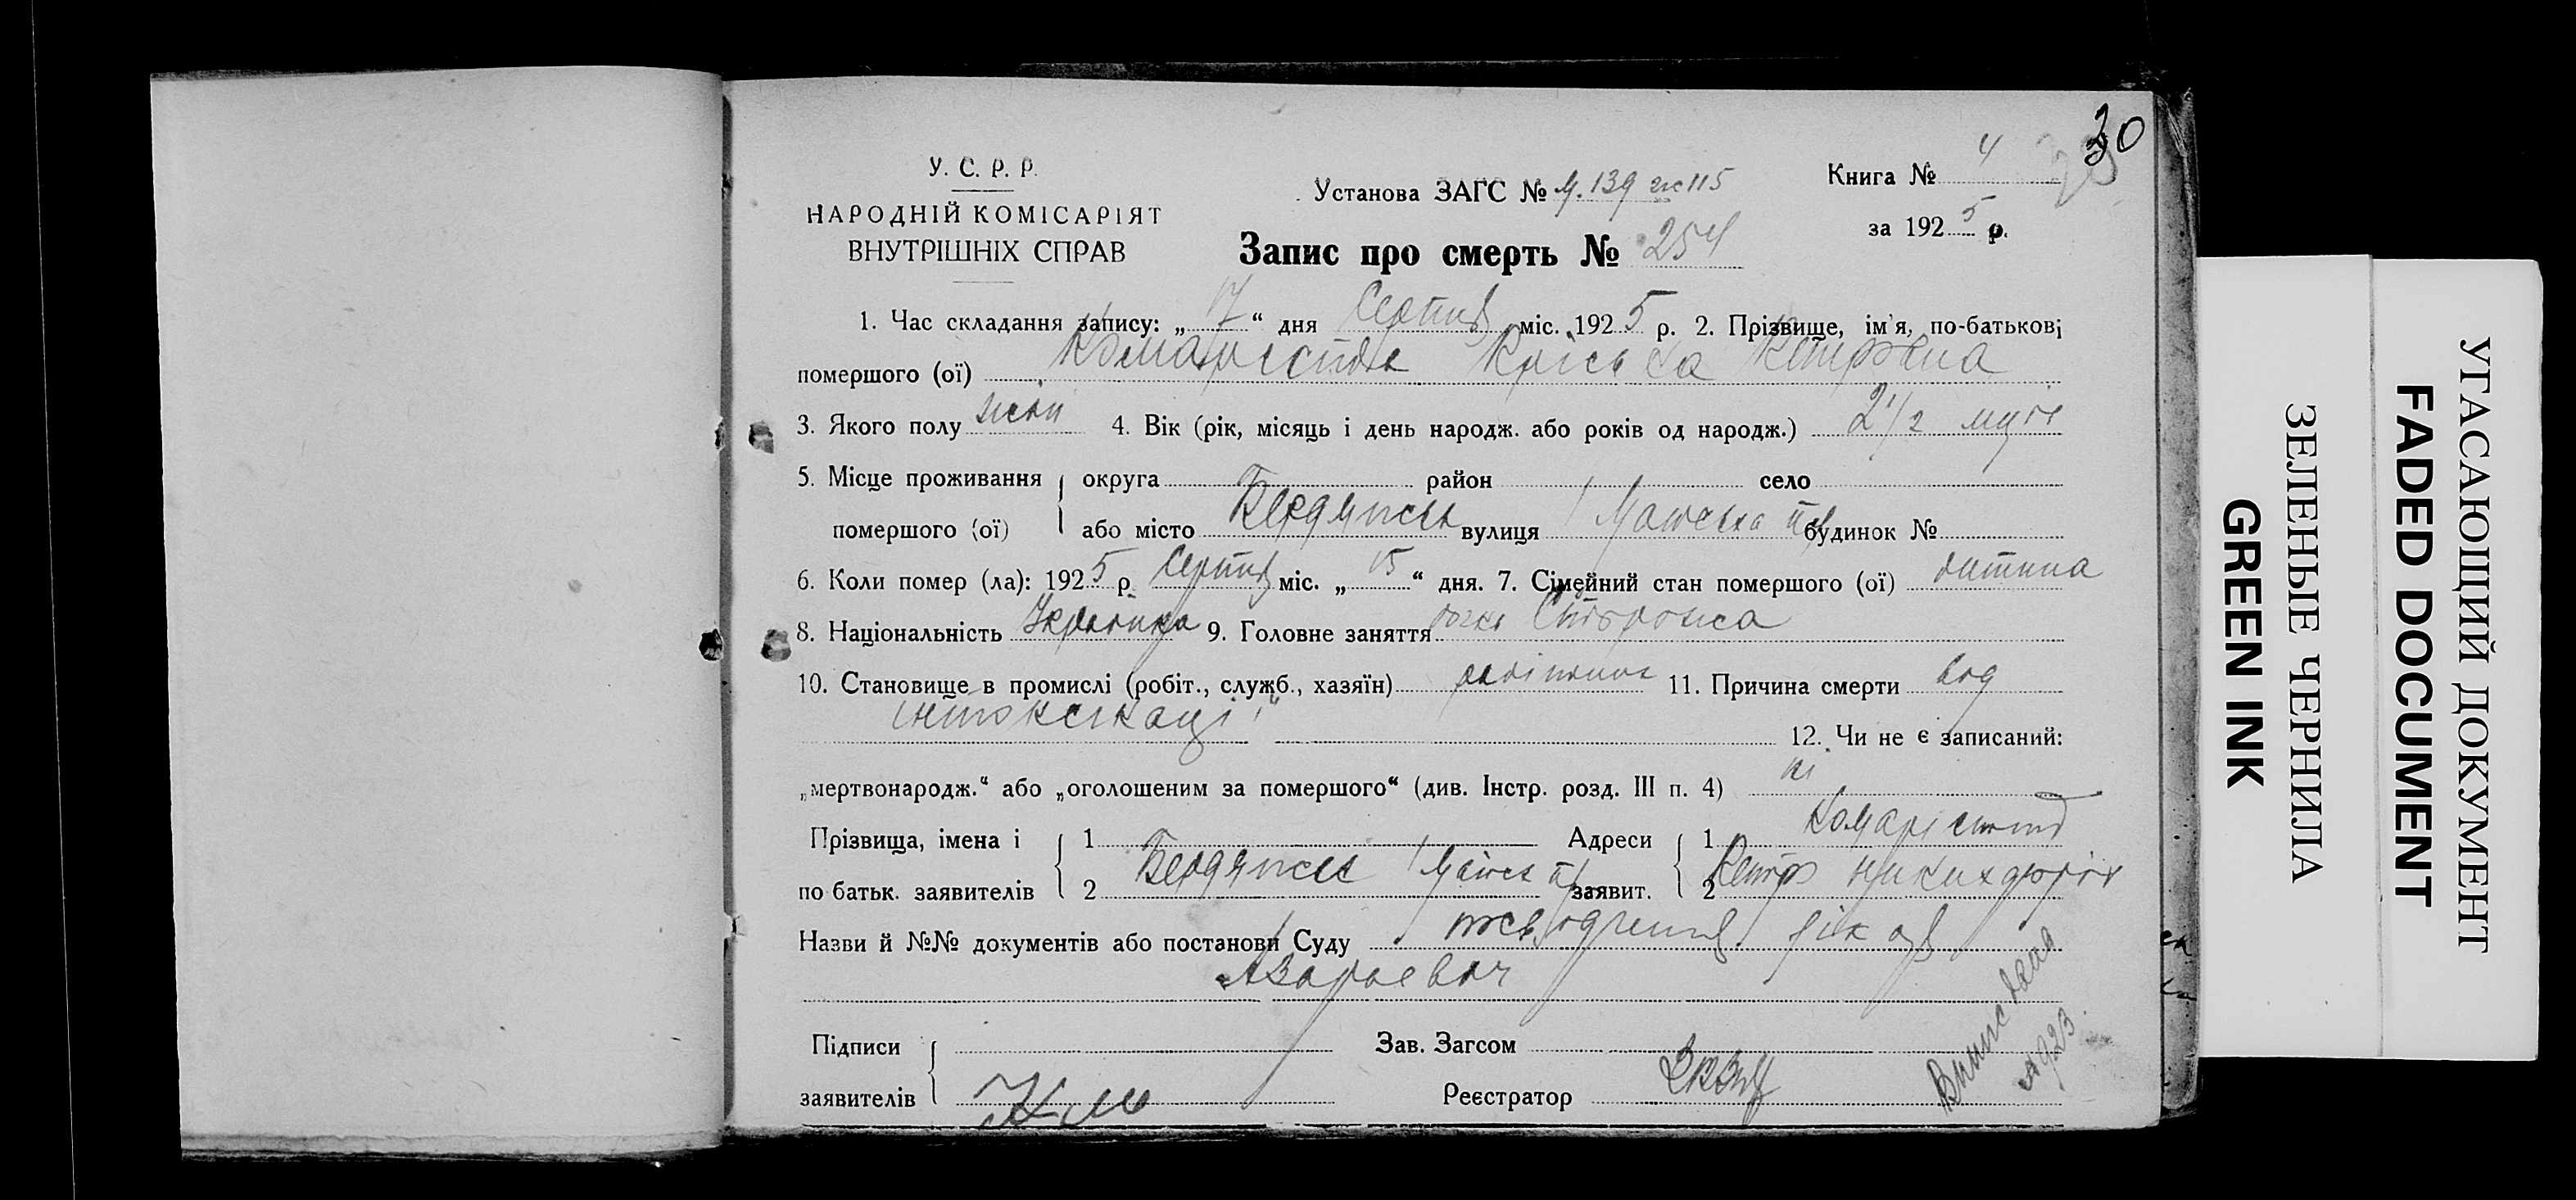 30
У. С. Р. Р.
НАРОДНІЙ КОМІСАРІЯТ
ВНУТРІШНІХ СПРАВ
Установа ЗАГС № 139 115
Книга № 4
за 1925 р.
Запис про смерть № 254
1. Час складання запису: „17“ дня Серпня міс. 1925 р. 2. Прізвище, ім'я, по-батькові
помершого (ої)
3. Якого полу жен 4. Вік (рік, місяць і день народж. або років од народж.) 2 1/2
5. Місце проживання округа район село
помершого (ої) або місто Бердянськ вулиця будинок №
6. Коли помер (ла): 1925 р. Серпня міс. „15“ дня. 7. Сімейний стан помершого (ої) дитина
8. Національність Українка 9. Головне заняття дочка Сторожа
10. Становище в промислі (робіт., служб., хазяїн) 11. Причина смерти від
інтоксікаціі
12. Чи не є записаний:
„мертвонародж.“ або „оголошеним за помершого“ (див. Інстр. розд. III п. 4) ні
Прізвища, імена і 1 Адреси 1
по батьк. заявителів 2 Бердянськ заявит. 2 Петр
Назви й №№ документів або постанови Суду
Підписи
заявителів
Зав. Загсом
Реєстратор
УГАСАЮЩИЙ ДОКУМЕНТ
FADED DOCUMENT
ЗЕЛЕНЫЕ ЧЕРНИЛА
GREEN INK